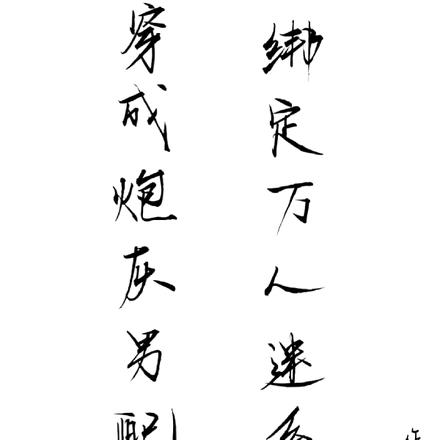 穿成炮灰男配
绑定万人迷系